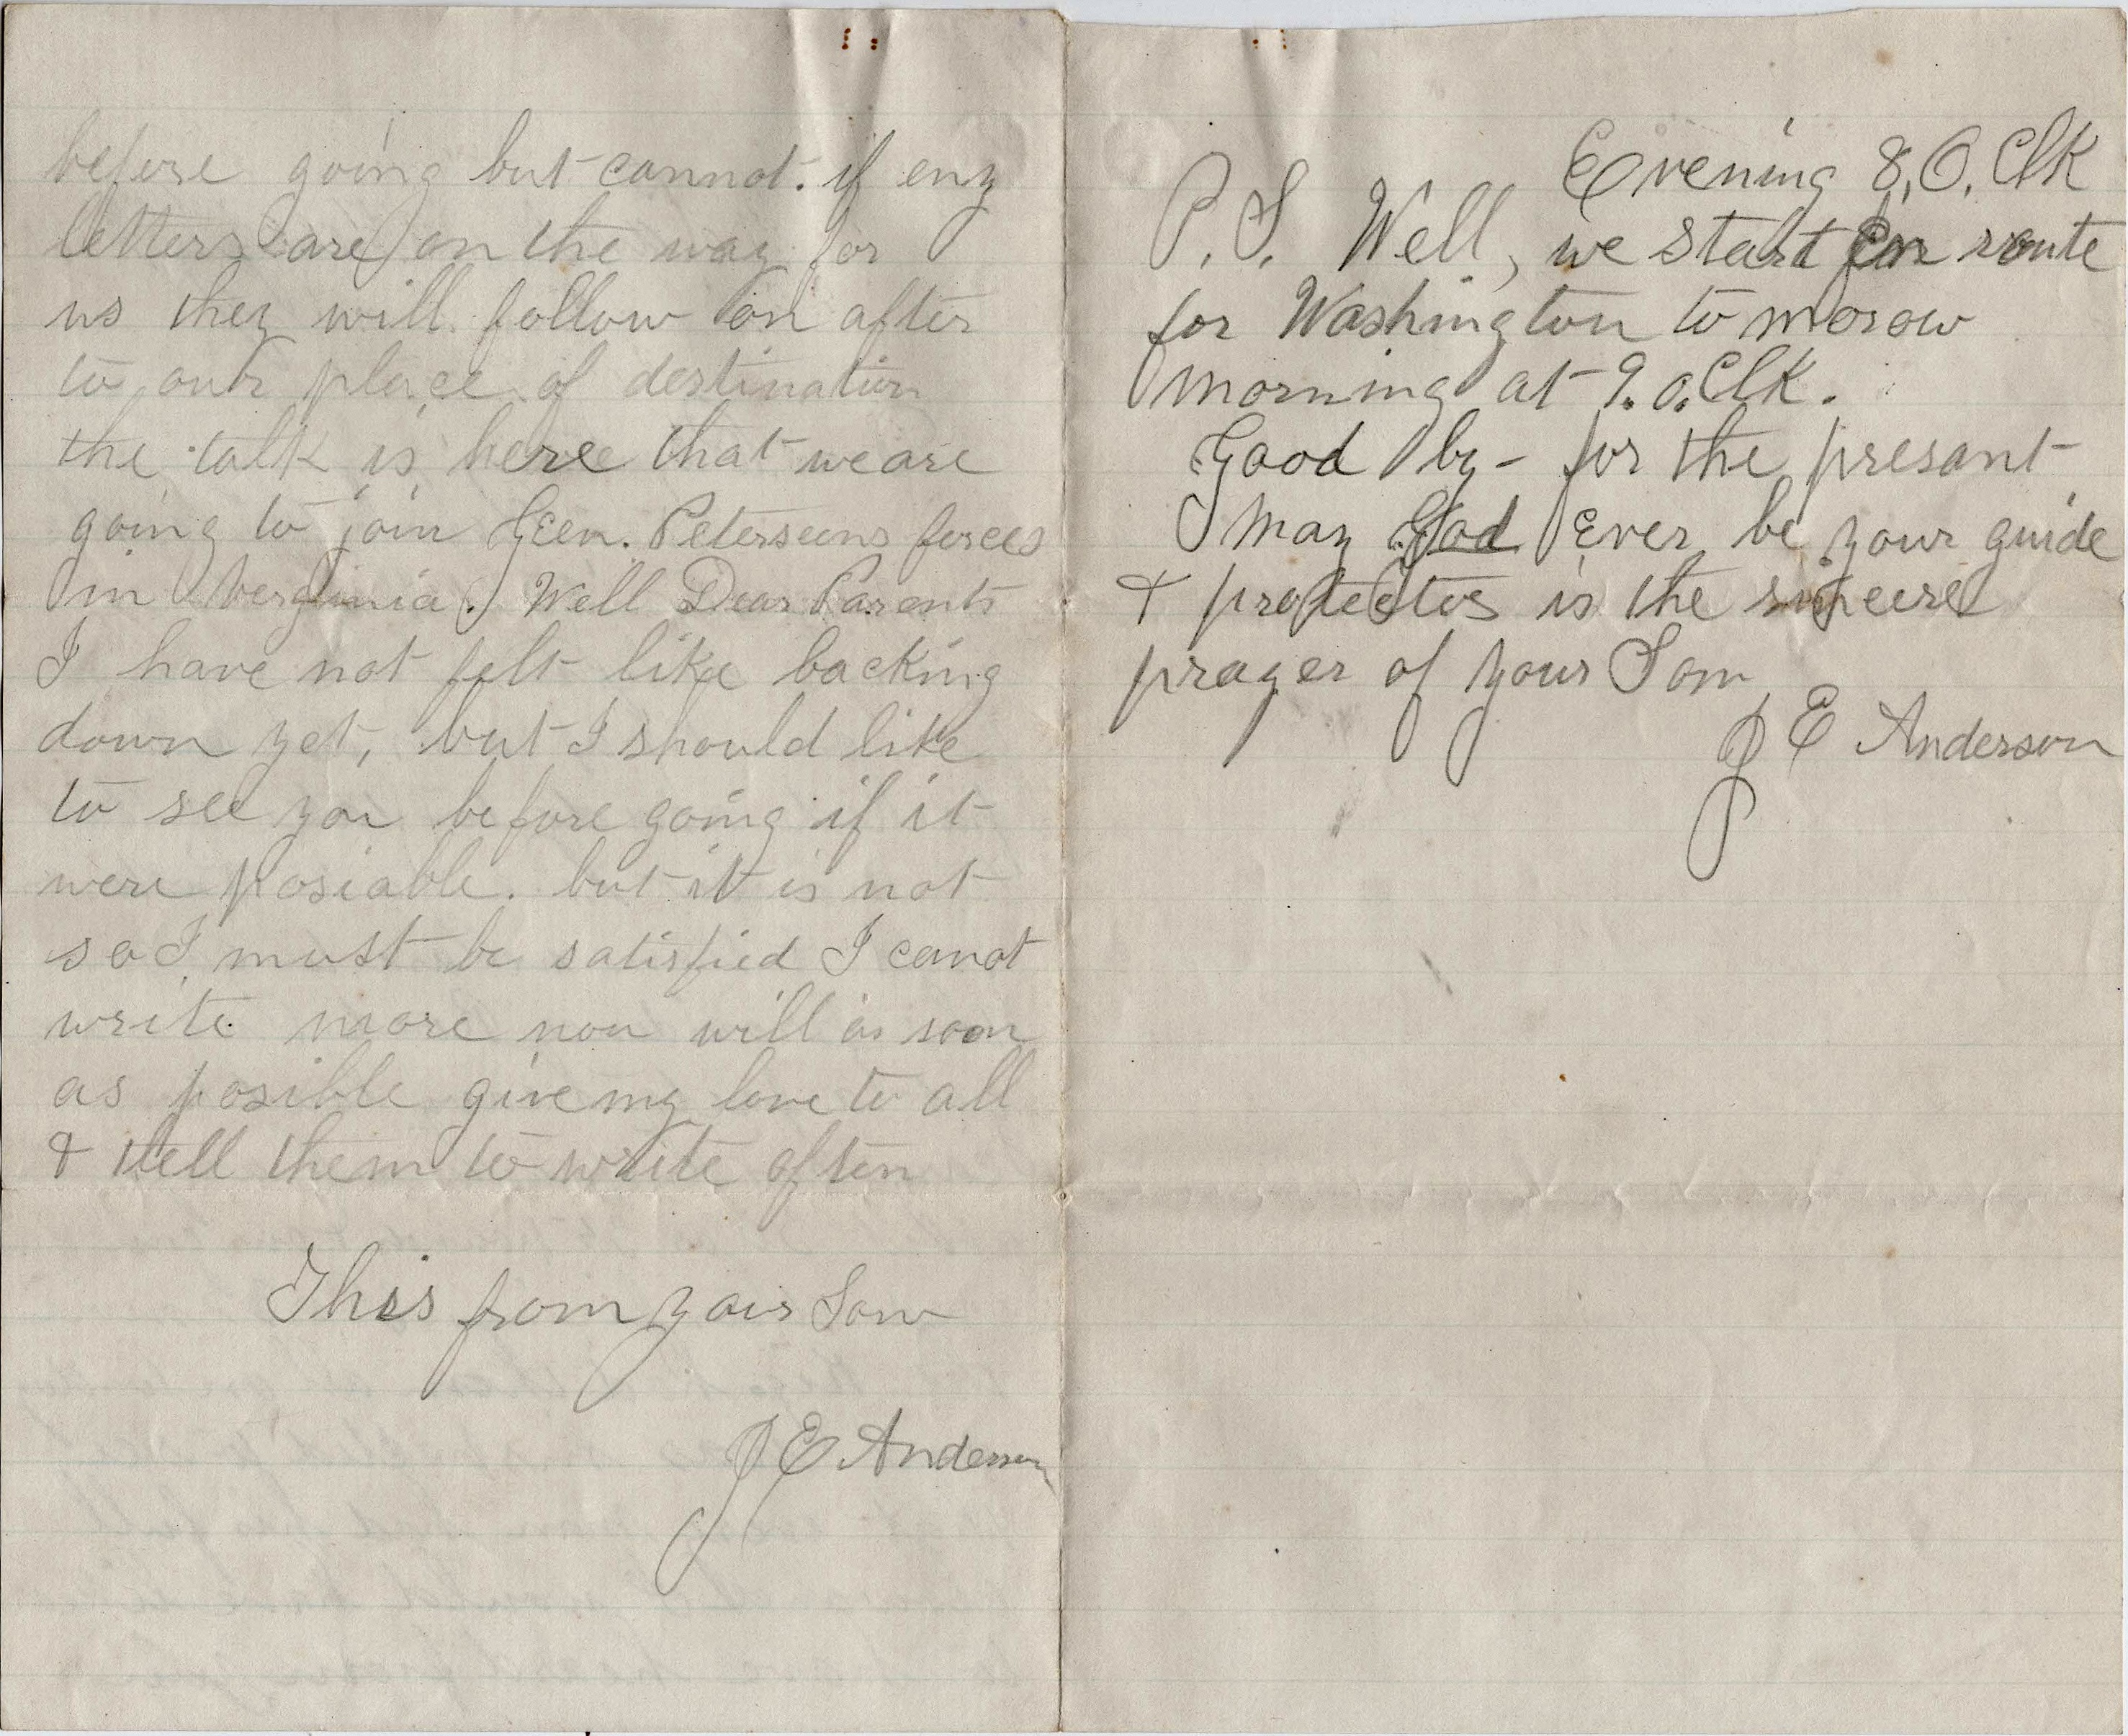 before going but cannot. if eny
letters are on the way for
us they will follow on after
to our place of destination
the talk is here that we are
going to join Geen. Peterseens forces
in Verginia. Well Dear Parents
I have not felt like backing
down yet, but I should like
to see you before going if it
were posiable. but it is not
so I must be satisfied I canot
write more now will as soon
as posible give my love to all
& tell them to write often
This from your Son
J E Anderson
Evening 8, O, Clk
P. S. Well, we start En route
for Washington to morow
morning at 9. o. Clk.
Good by - for the presant
May God Ever be your guide
& protector is the sincere
prayer of your Son
J E Anderson